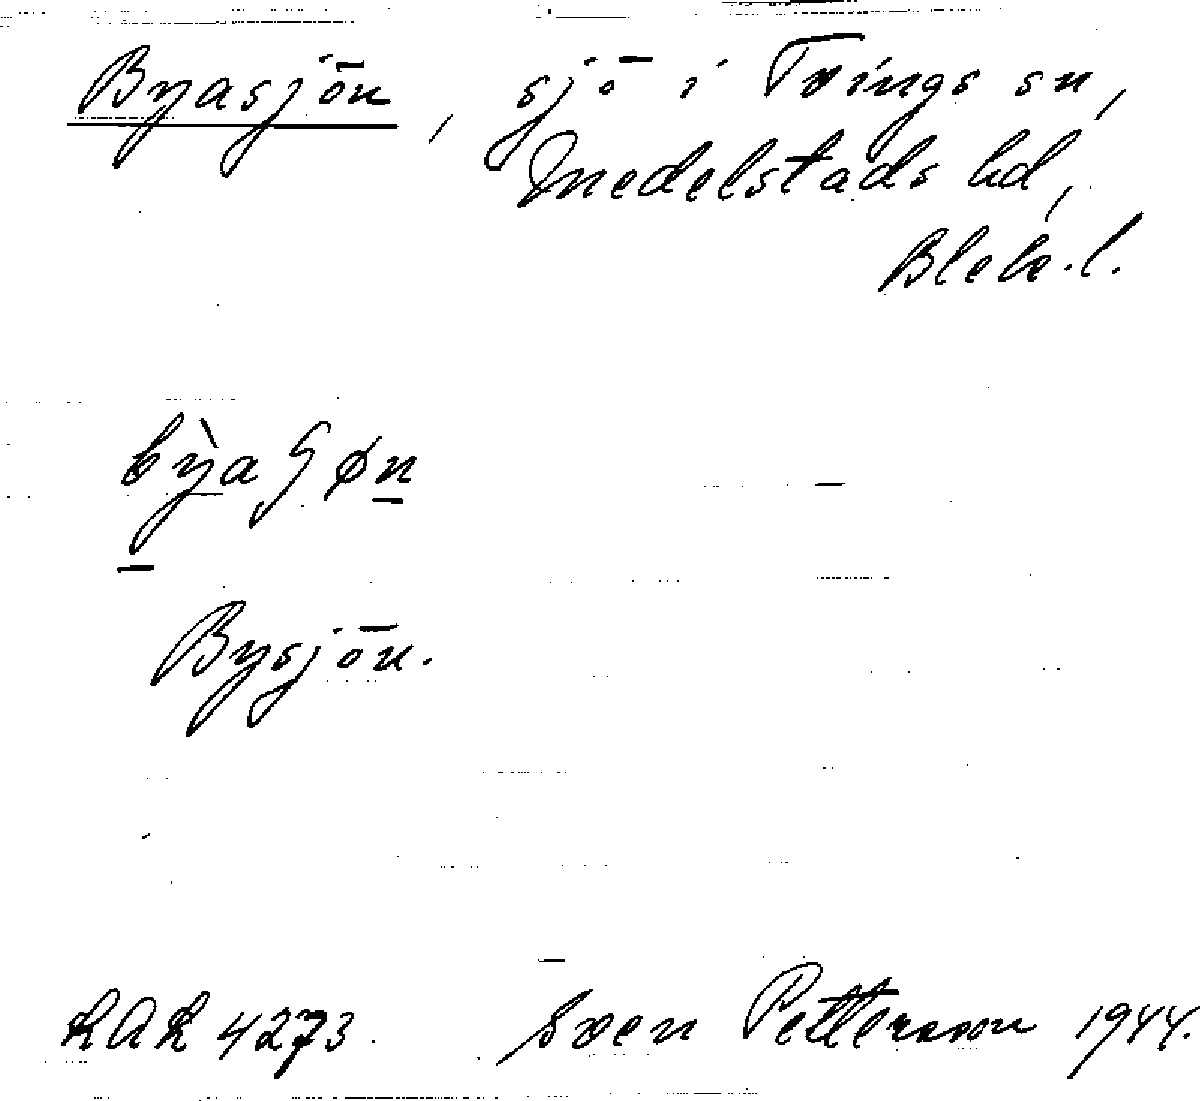 Byasjön, sjö i Tvings sn,
Medelstads hd,
Blek.l.
bỳaʃøn
Bysjön.
LAL 4273 Sven Pettersson 1944.